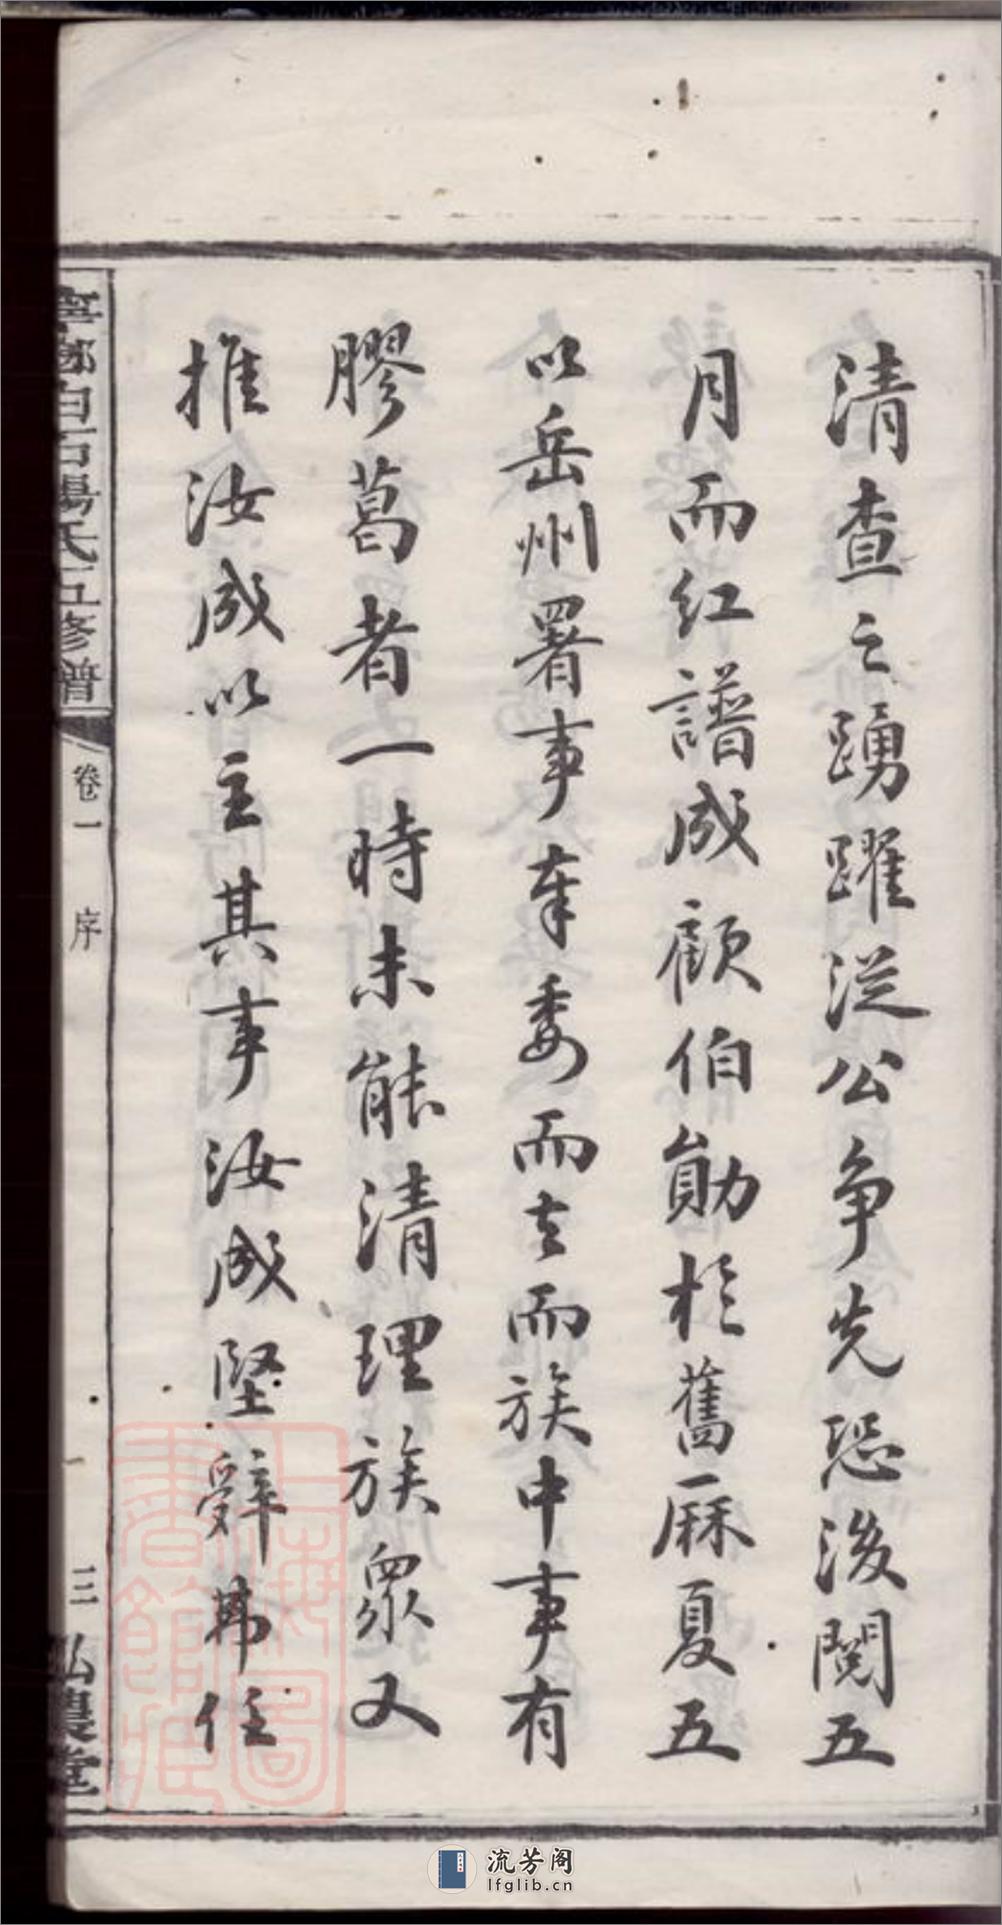 清查之踴躍從公爭先恐後閱五
月而紅譜成顧伯勛於舊厤夏五
以岳州署事奉委而去而族中事有
膠葛者一時未能清理族眾又
推汝成以主其事汝成堅辭弗任
寧鄉白石楊氏五修譜
卷一
序
三
弘農堂
上海圖書館藏
流芳阁
lfglib.cn